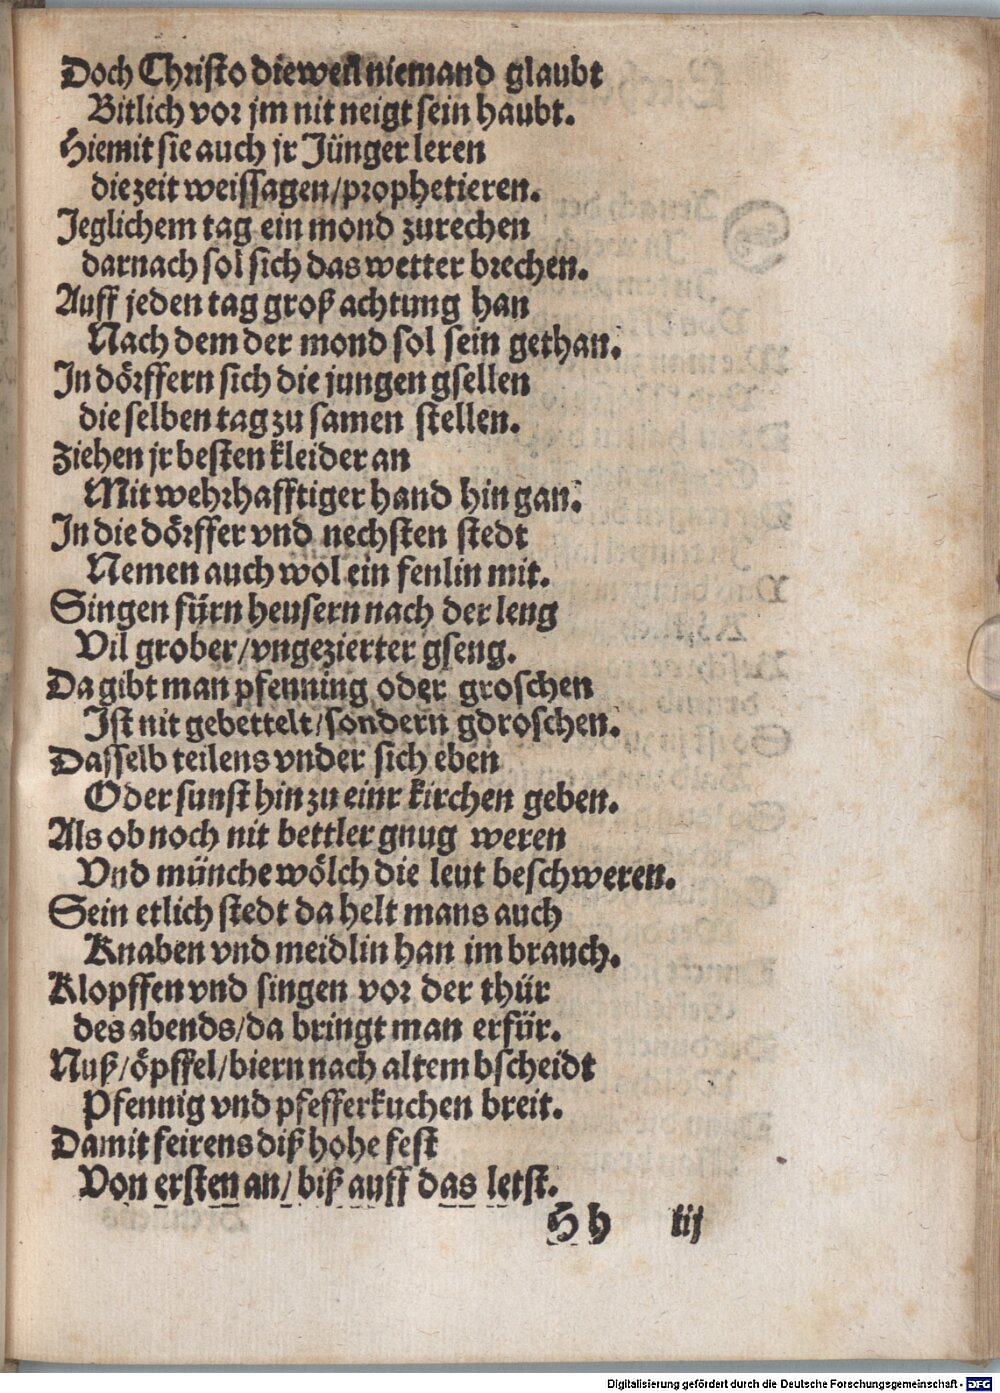 Doch Christo dieweil niemand glaubt
Bitlich vor jm nit neigt sein haubt.
Hiemit sie auch jr Jünger leren
die zeit weissagen/prophetieren.
Jeglichem tag ein mond zurechen
darnach sol sich das wetter brechen.
Auff jeden tag groß achtung han
Nach dem der mond sol sein gethan.
In dörffern sich die jungen gsellen
die selben tag zu samen stellen.
Ziehen jr besten kleider an
Mit wehrhafftiger hand hin gan.
In die dörffer vnd nechsten stedt
Nemen auch wol ein fenlin mit.
Singen fürn heusern nach der leng
Vil grober/vngezierter gseng.
Da gibt man pfenning oder groschen
Ist nit gebettelt/sondern gdroschen.
Dasselb teilens vnder sich eben
Oder sunst hin zu einr kirchen geben.
Als ob noch nit bettler gnug weren
Vnd münche wölch die leut beschweren.
Sein etlich stedt da helt mans auch
Knaben vnd meidlin han im brauch.
Klopffen vnd singen vor der thür
des abends/da bringt man erfür.
Nuß/öpffel/biern nach altem bscheidt
Pfennig vnd pfefferkuchen breit.
Damit feirens diß hohe fest
Von ersten an/ biß auff das letst.
Hh iij
Digitalisierung gefördert durch die Deutsche Forschungsgemeinschaft - DFG